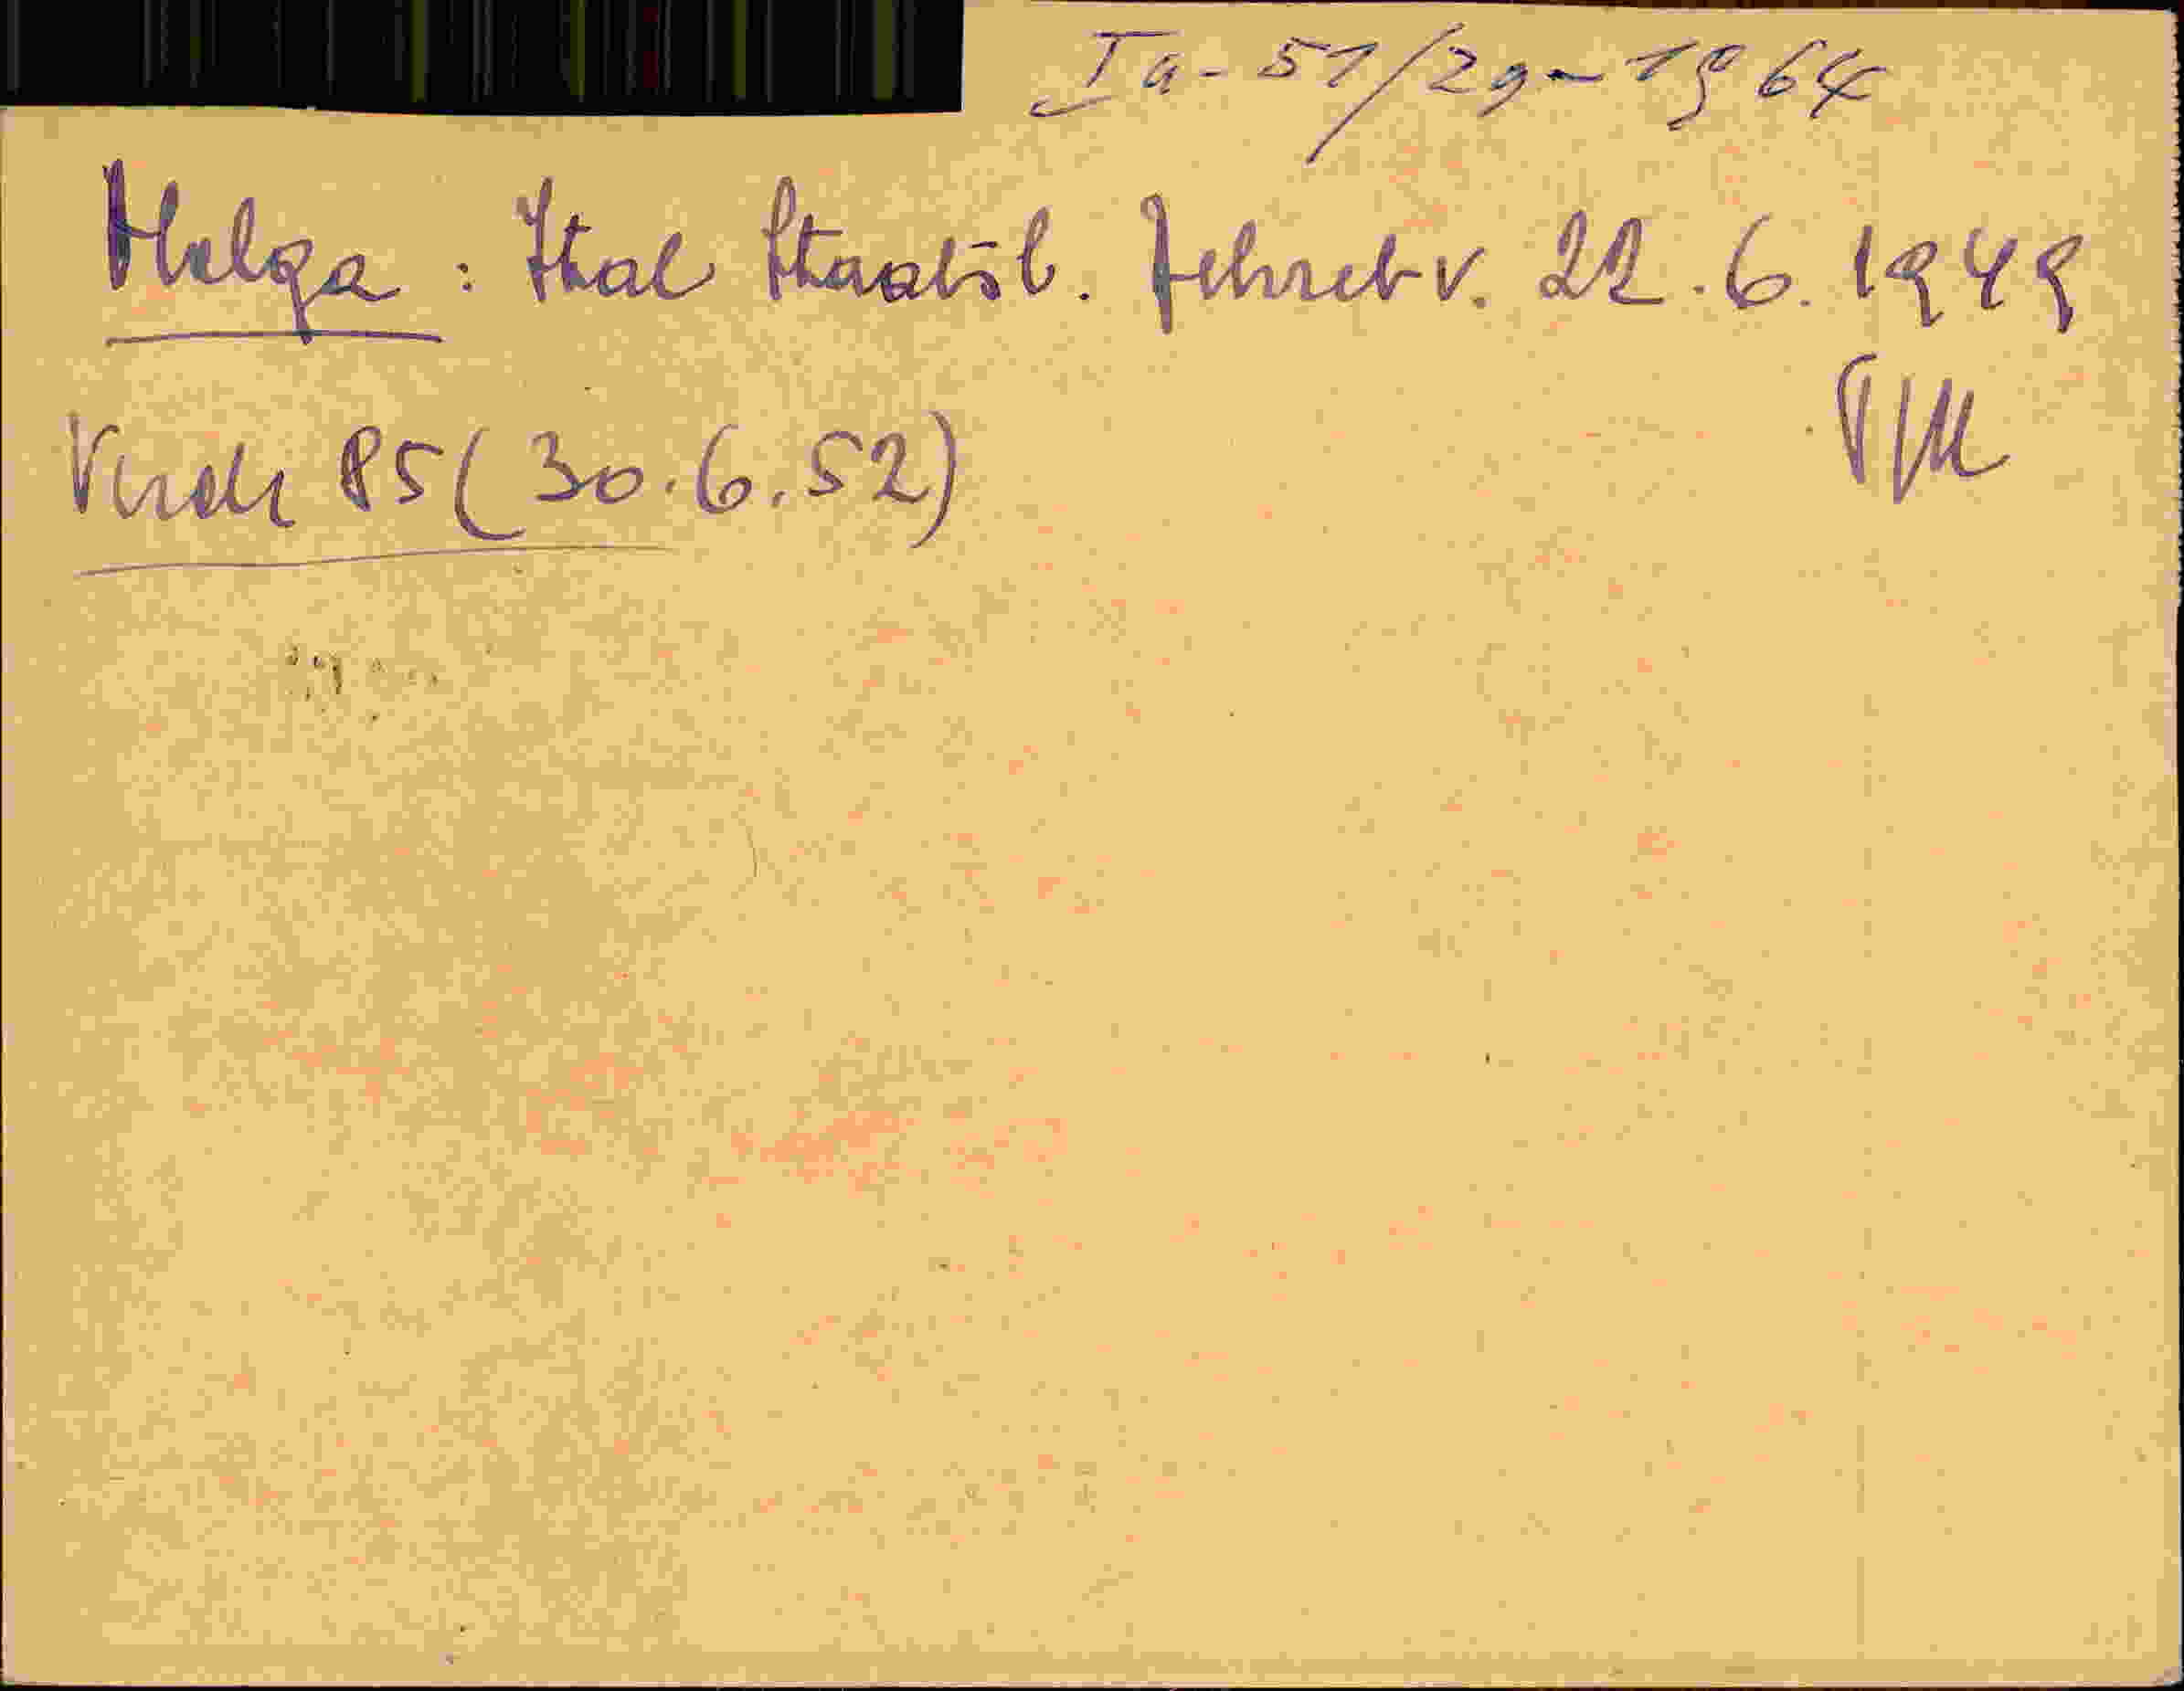 Ia-51/29-1964
Helga: Ital Staatsb. v. 22.6.1949
85 (30.6.52)